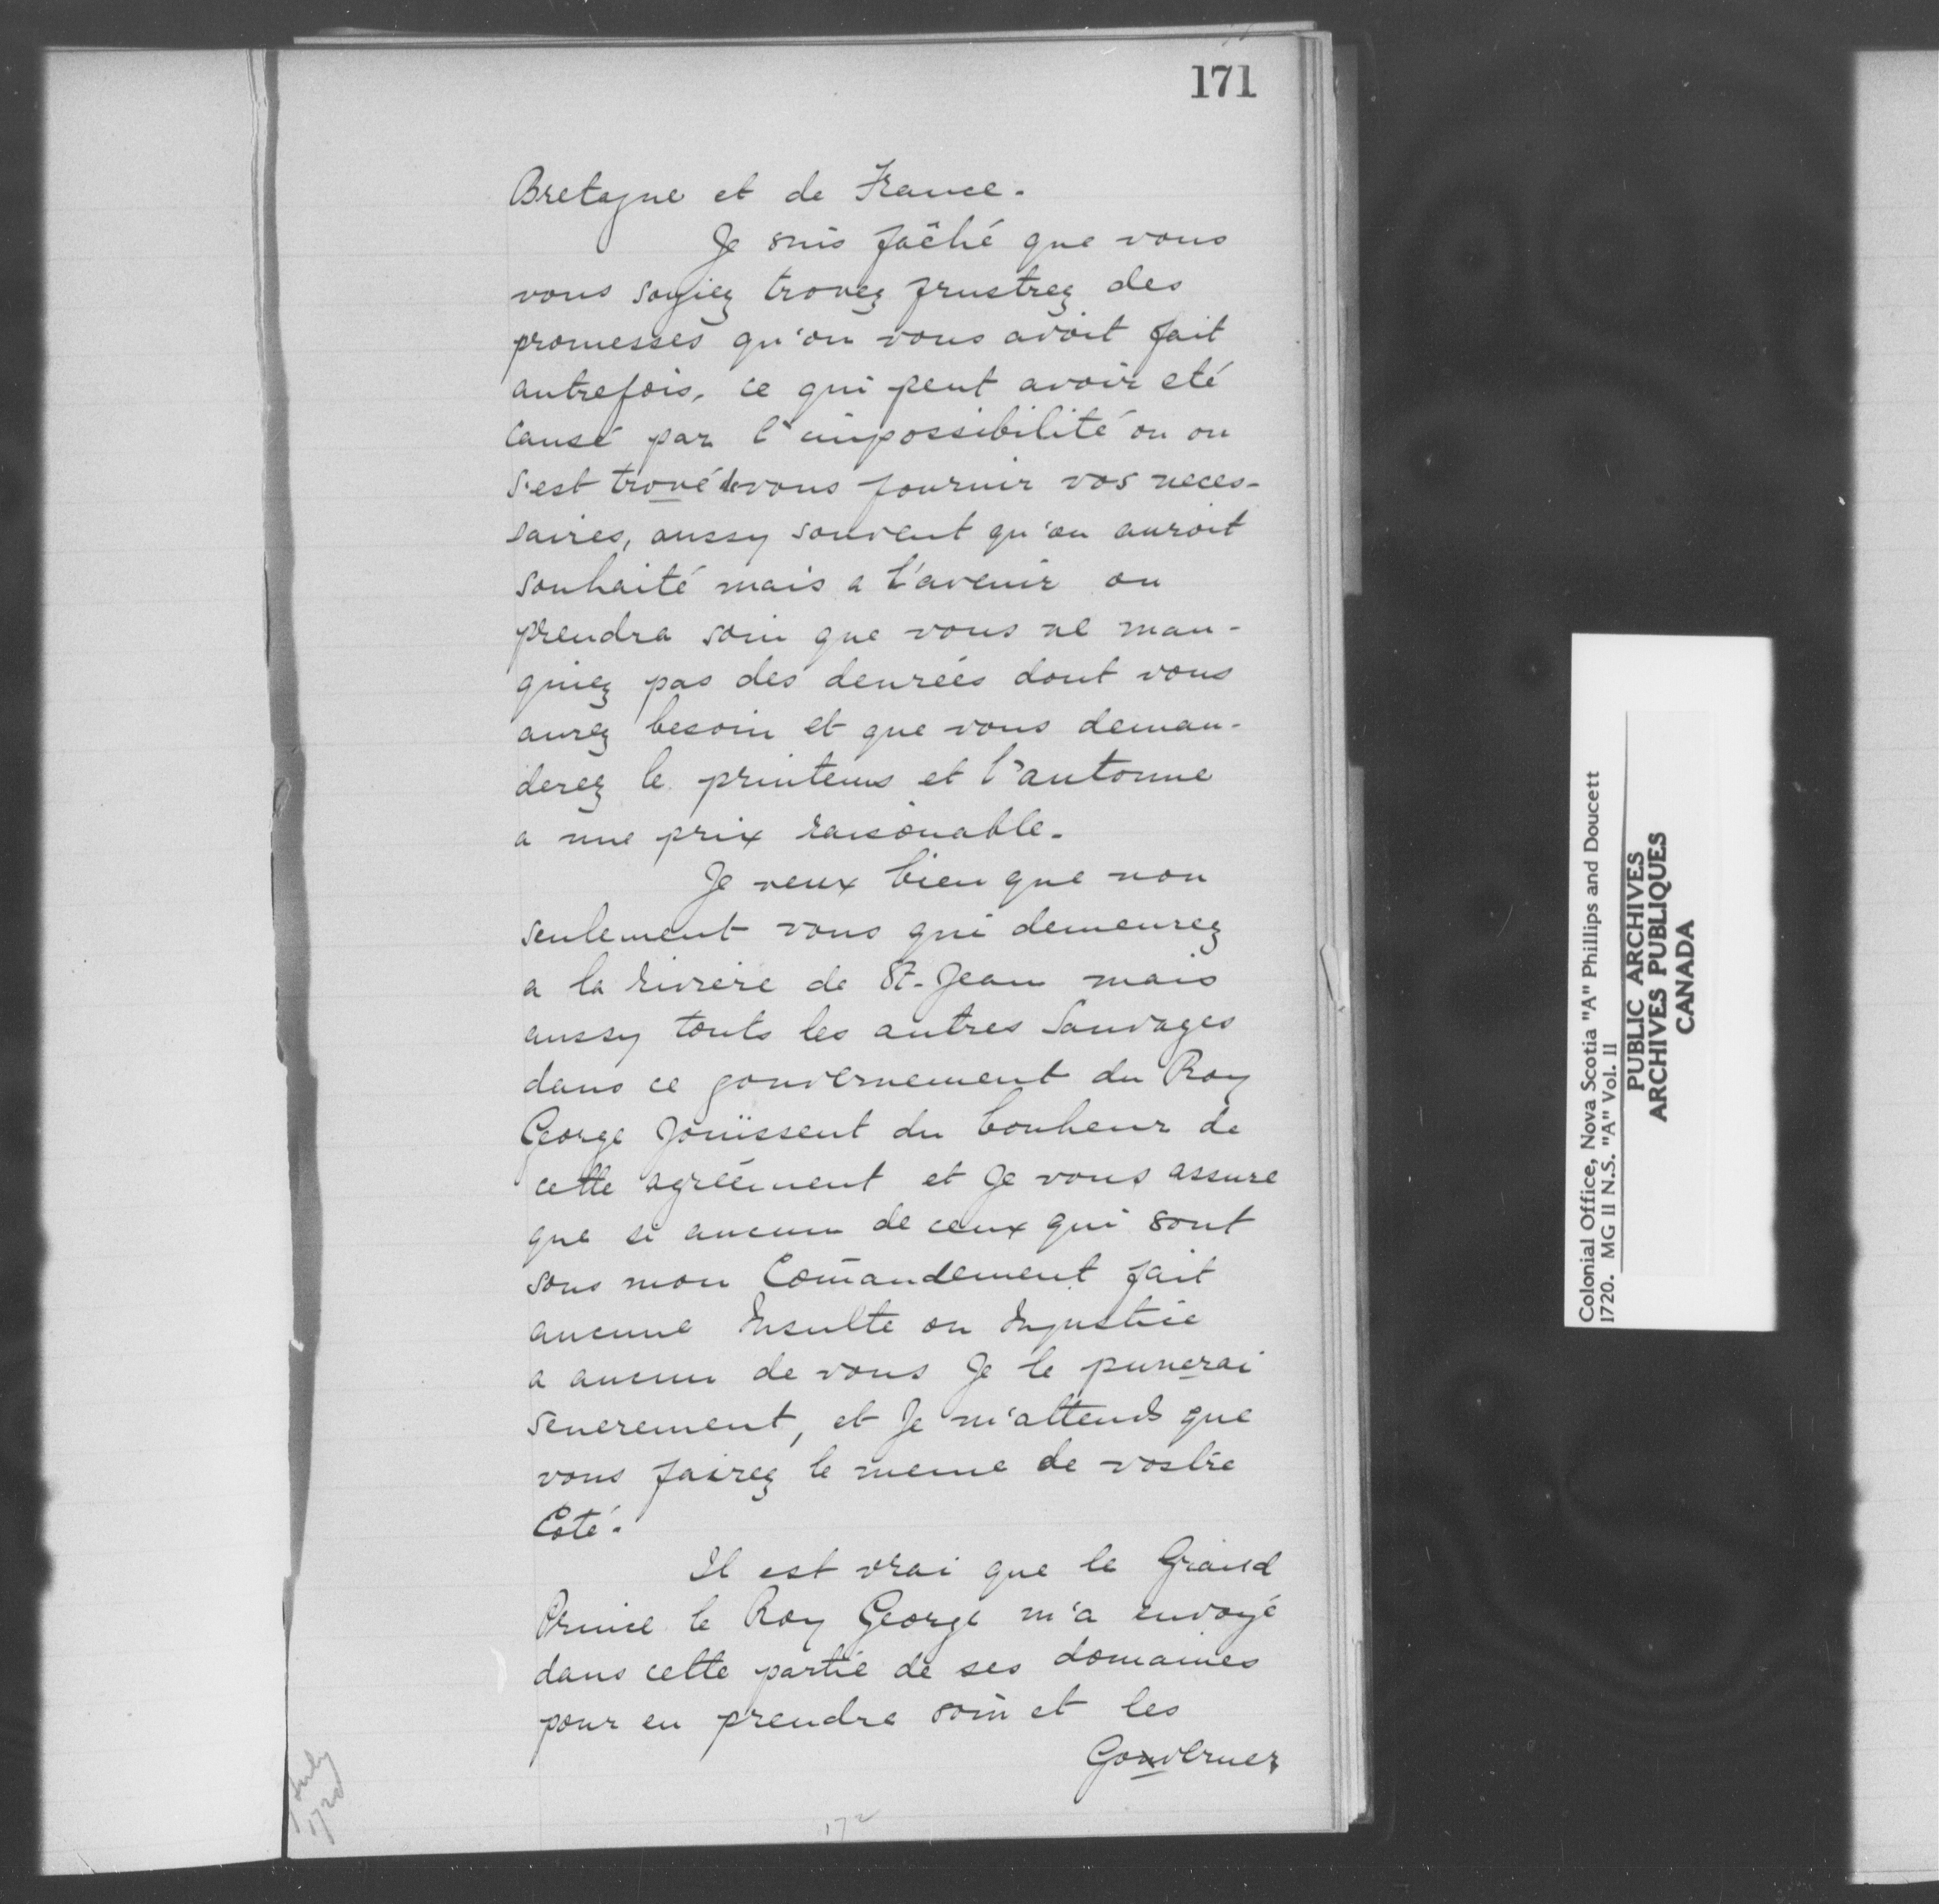 171
Bretagne et de France.
Je suis faêhé que vous
vous soyiez trovez frustrez des
promesses qu'on vous avoit fait
autrefois, ce qui peut avoir eté
Causé par l'impossibilité ou on
s'est trové de vous fournir vos neces-
saires, aussy souvent qu'on auroit
souhaité mais a l'avenir on
prendra soin que vous ne man-
quiez pas des denrées dont vous
aurez besoin et que vous deman-
derez le printems et l'autonne
a une prix raisonable.
Je veux bien que non
seulement vous qui demeurez
a la riviere de St. Jean mais
aussy touts les autres Sauvages
dans ce gouvernement du Roy
George Jouïssent du bonheur de
cette agréement et Je vous assure
que si aucun de ceux qui sont
sous mon Com̄andement fait
aucune Insulte ou Injustice
a aucun de vous Je le punerai
severement, et Je m'attends que
vous fairez le meme de vostre
Coté.
Il est vrai que le Grand
Prince le Roy George m'a envoyé
dans cette partie de ses domaines
pour en prendre soin et les
Gouverner
July
1720
172
Colonial Office, Nova Scotia "A" Phillips and Doucett
1720. MG II N.S. "A" Vol. II
PUBLIC ARCHIVES
ARCHIVES PUBLIQUES
CANADA